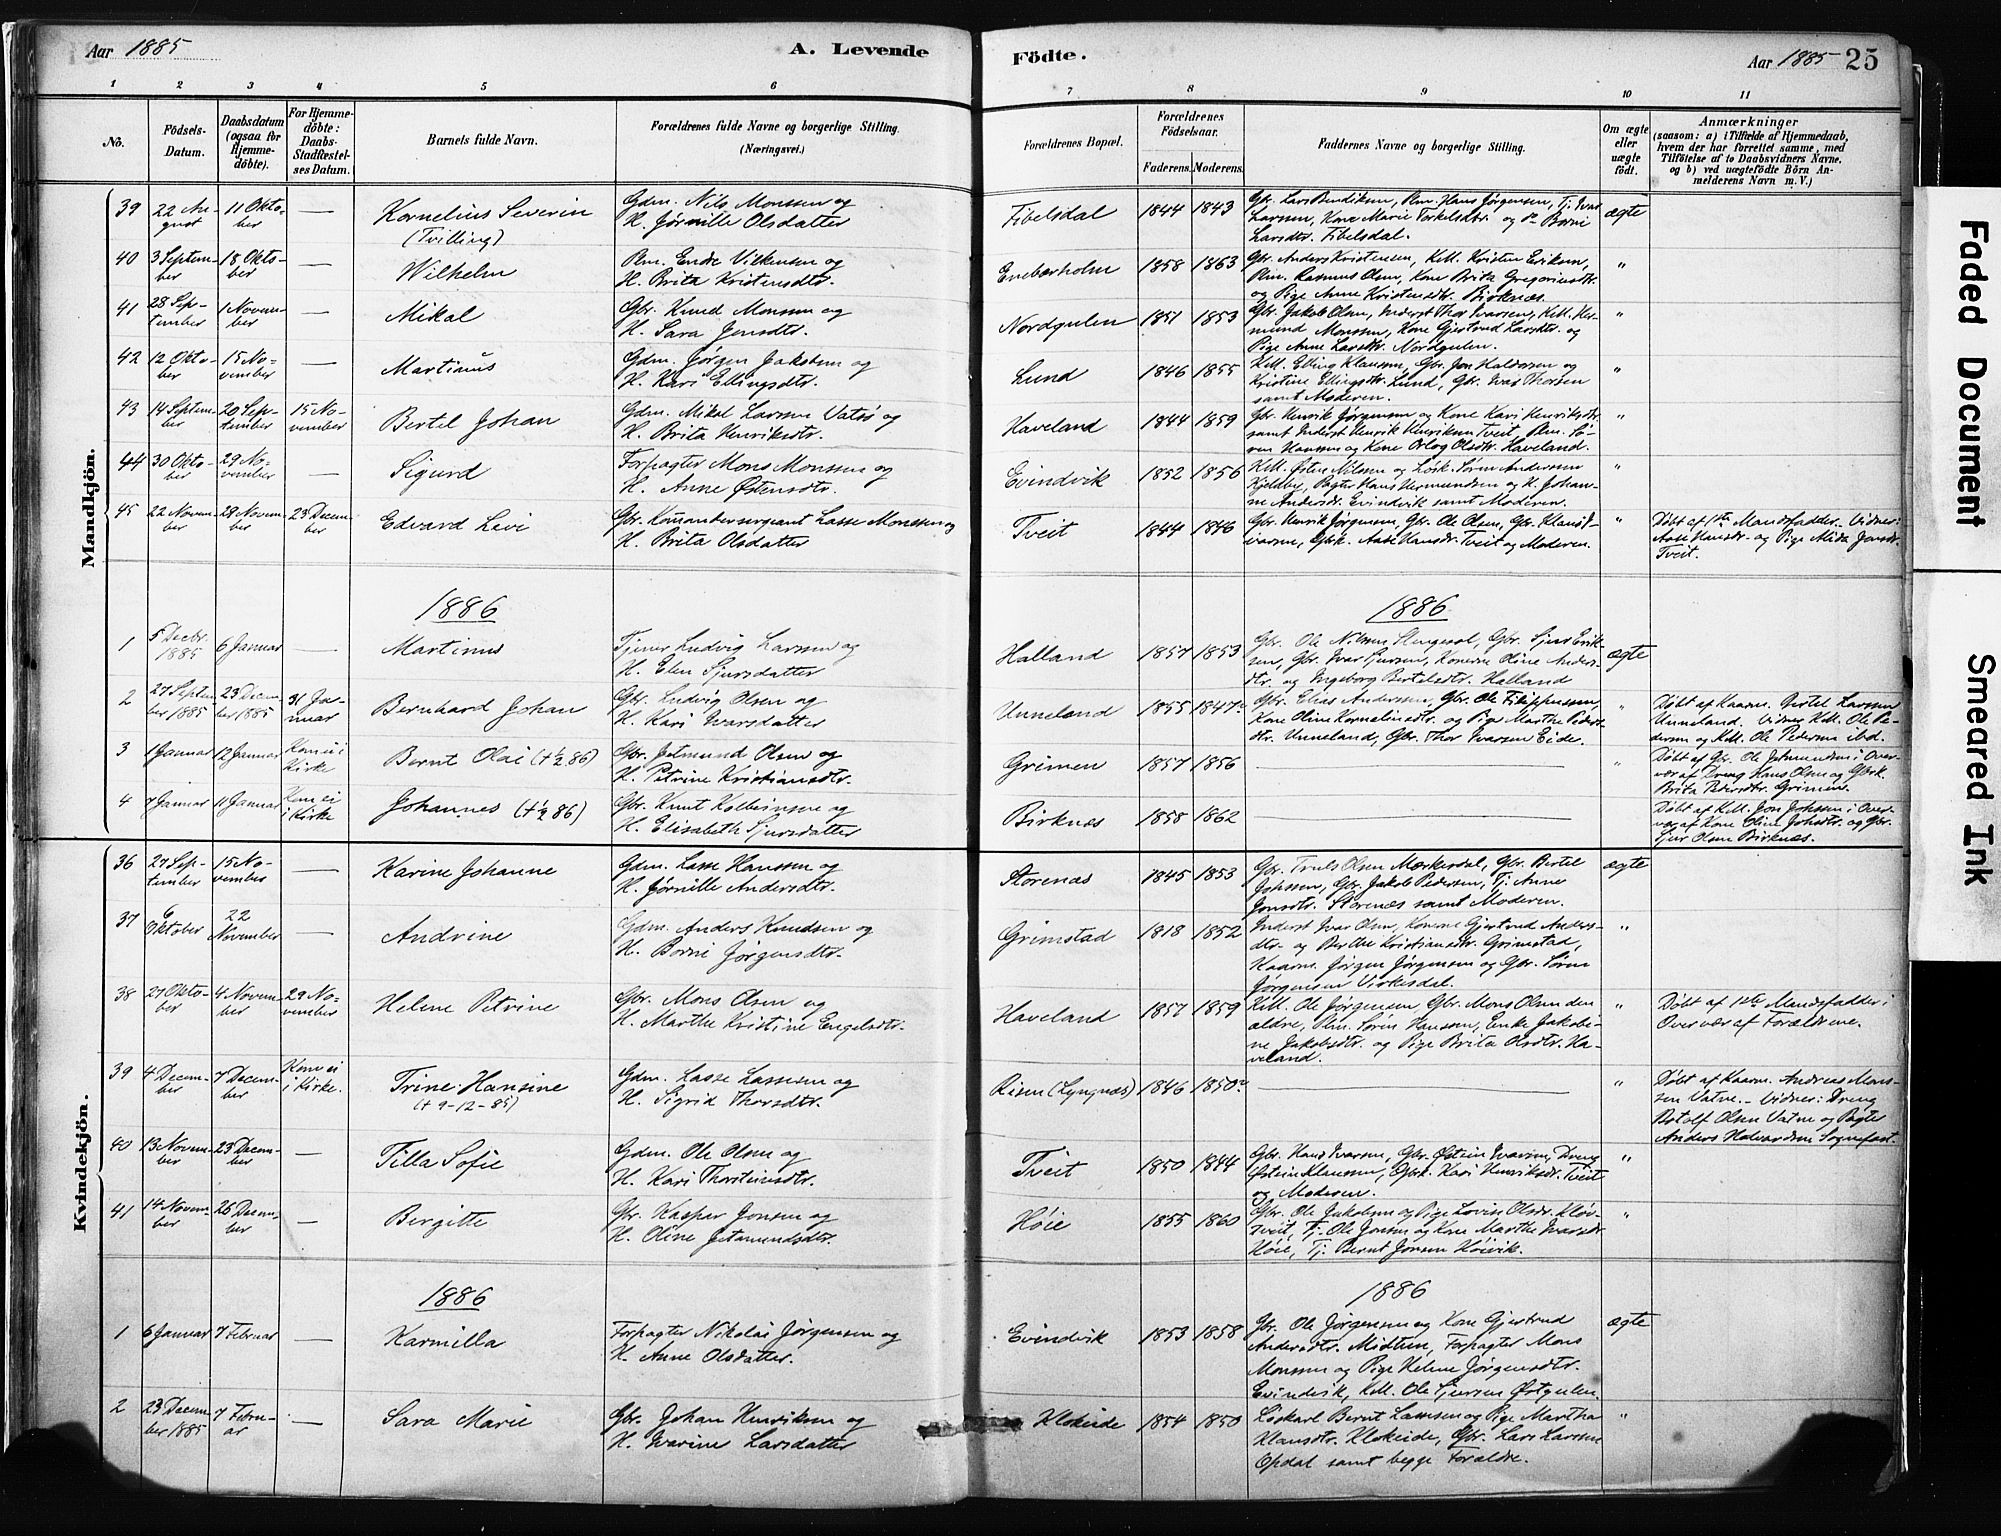 Aar 1885
A. Levende
Födte.
Aar 1885
25
1 2 3 4 5 6 7 8 9 10 11
No.
Födsels-Datum.
Daabsdatum (ogsaa for Hjemme-döbte).
For Hjemme-döbte: Daabs-Stadfæstel-ses Datum.
Barnets fulde Navn.
Forældrenes fulde Navne og borgerlige Stilling.
(Næringsvei.)
Forældrenes Bopæl.
Forældrenes Födselsaar.
Faderens. Moderens.
Faddernes Navne og borgerlige Stilling.
Om ægte eller uægte födt.
Anmærkninger
(saasom: a) i Tilfælde af Hjemmedaab,
hvem der har forrettet samme, med
Tilföielse af to Daabsvidners Navne,
og b) ved uægtefödte Börn An-
melderens Navn m. V.)
Mandkjön.
39 22 August 11 Oktober — Kornelius Severin (Tvilling) Gdm. Nils Monssen og H. Jørnille Olsdatter Fibelsdal 1844 1843 Gbr. Lars Bendiksen, Plm. Hans Jørgensen, Tj. Ivar Larssen, Kone Marie Torkelsdtr. og Borni Larsdtr. Fibelsdal. ægte
40 3 September 18 Oktober — Wilhelm Plm. Endre Vilkensen og H. Brita Kristensdtr. Enebærholm 1858 1863 Gbr. Anders Kristensen, Kell. Kristen Eriksen, Plm. Rasmus Olsen, Kone Brita Gregoriusdtr. og Pige Anne Kristensdtr. Birknæs. "
41 28 September 1 November — Mikal Gbr. Knud Monssen og H. Sara Jensdtr. Nordgulen 1851 1853 Gbr. Jakob Olsen, Inderst Thor Ivarsen, Kell. Hermund Monssen, Kone Gjertrud Larsdtr. og Pige Anne Larsdtr. Nordgulen. "
42 12 Oktober 15 November — Martinus Gdm. Jørgen Jakobsen og H. Kari Ellingsdtr. Lund 1846 1855 Kell. Elling Klaussen, Gbr. Jon Haldorsen og Kristine Ellingsdtr. Lund, Gbr. Ivar Thorsen samt Moderen. "
43 14 September 20 September 15 November Bertel Johan Gdm. Mikal Larssen Vatsø og H. Brita Henriksdtr. Haveland 1844 1859 Gbr. Henrik Jørgensen og Kone Kari Henriksdtr. samt Inderst Henrik Henriksen Tveit, Plm. Søren Hanssen og Kone Orlog Olsdtr. Haveland. "
44 30 Oktober 29 November — Sigurd Forpagter Mons Monssen og H. Anne Østensdtr. Evindvik 1852 1856 Kell. Østen Nilssen og Løsk. Søren Andersen Kjelsbø, Pagter Hans Hermundsen og H. Johanne Andersdr. Evindvik samt Moderen. "
45 22 November 28 November 23 December Edvard Levi Gbr. Komandersergeant Lasse Monssen og H. Brita Olsdatter Tveit 1844 1846 Gbr. Henrik Jørgensen, Gbr. Ole Olsen, Gbr. Klaus Ivarsen, Gbrk. Aase Hansdtr. Tveit og Moderen. " Døbt af 1ste Mandsfadder. Vidner: Aase Hansdtr. og Pige Alida Jensdr. Tveit.
1886
1886
1 5 Decbr. 1885 6 Januar Martinus Tjener Ludvig Larssen og H. Elen Sjursdatter Halland 1857 1853 Gbr. Ole Nilssen Stengesol, Gbr. Sjurs Eriksen, Gbr. Ivar Sjursen, Konerne Oline Andersdtr. og Ingeborg Bertelsdtr. Halland ægte
2 27 September 1885 23 December 1885 31 Januar Bernhard Johan Gbr. Ludvig Olsen og H. Kari Ivarsdatter Unneland 1855 1847 Gbr. Elias Andersen, Gbr. Ole Filippussen, Kone Oline Korneliusdtr. og Pige Marthe Pedersdtr. Unneland, Gbr. Thor Ivarsen Eide. " Døbt af Kaarm. Bertel Larssen Unneland. Vidner Kell. Ole Pedersen og Kell. Ole Pedersen ibd.
3 1 Januar 12 Januar Kom ei i Kirke Bernt Olai (+ ½ 86) Gbr. Jetmund Olsen og H. Petrine Kristiansdtr. Grimen 1857 1856 — " Døbt af Gbr. Ole Jetmundsen i Overvær af Dreng Hans Olsen og Gbrk. Brita Pedersdtr. Grimen.
4 7 Januar 11 Januar Kom ei i Kirke Johannes (+ ½ 86) Gbr. Knut Kolbeinsen og H. Elisabeth Sjursdatter Birknæs 1858 1862 — Døbt af Kell. Jon Johssen i Overvær af Kone Oline Johsdtr. og Gbr. Sjur Olsen Birknæs.
Kvindekjön.
36 27 September 15 November — Karine Johanne Gdm. Lasse Hanssen og H. Jørnille Andersdtr. Storenæs 1845 1853 Gbr. Truls Olsen Mærkesdal, Gbr. Bertel Johssen, Gbr. Jakob Pedersen, Tj. Anne Jonsdtr. Storenæs samt Moderen. ægte
37 6 Oktober 22 November — Andrine Gdm. Anders Knudsen og H. Borni Jørgensdtr. Grimstad 1818 1852 Inderst Ivar Olsen, Konerne Gjertrud Andersdtr. og Berthe Kristiansdtr. Grimstad, Kaarm. Jørgen Jørgensen og Gbr. Søren Jørgensen Virkesdal. "
38 27 Oktober 4 November 29 November Helene Petrine Gbr. Mons Olsen og H. Marthe Kristine Engelsdtr. Haveland 1857 1859 Kell. Ole Jørgensen, Gbr. Mons Olsen den ældre, Plm. Søren Hanssen, Enke Jakobine Jakobsdtr. og Pige Brita Olsdtr. Haveland. " Døbt af 1ste Mandsfadder i Overvær af Forældrene.
39 4 December 7 December Kom ei i Kirke. Trine Hansine (+ 9-12-85) Gdm. Lasse Lassesen og H. Sigrid Thorsdtr. Risen (Lyngnæs) 1846 1850 — " Døbt af Kaarm. Andreas Monssen Vatne. – Vidner: Dreng Botolf Olsen Vatne og Pagter Anders Halvardsen Sognefæst.
40 13 November 23 December — Tilla Sofie Gdm. Ole Olsen og H. Kari Thorsteinsdtr. Tveit 1850 1844 Gbr. Hans Ivarsen, Gbr. Østein Ivarsen, Dreng Østein Klaussen, Gbrk. Kari Henriksdtr. Tveit og Moderen. "
41 14 November 26 December — Bergitte Gbr. Kaspar Jonsen og H. Oline Jetmundsdtr. Høie 1855 1860 Gbr. Ole Jakobsen og Pige Lovise Olsdr. Kløvtveit, Tj. Ole Jonsen og Kone Marthe Ivarsdr. Høie, Tj. Bernt Jonsen Høievik. "
1886
1886
1 6 Januar 7 Februar — Karmilla Forpagter Nikolai Jørgensen og H. Anne Olsdatter. Evindvik 1853 1858 Gbr. Ole Jørgensen og Kone Gjertrud Andersdtr. Midtun, Forpagter Mons Monssen og Pige Helene Jørgensdtr. Evindvik, Kell. Ole Sjursen Østgulen. ægte
2 23 December 1885 7 Februar — Sara Marie Gbr. Johan Henriksen og H. Ivarine Larsdatter Klokeide 1854 1850 Løskarl Bernt Larssen og Pige Martha Klausdtr. Klokeide, Gbr. Lars Larssen Opdal samt begge Forældre. "
Faded Document
Smeared Ink